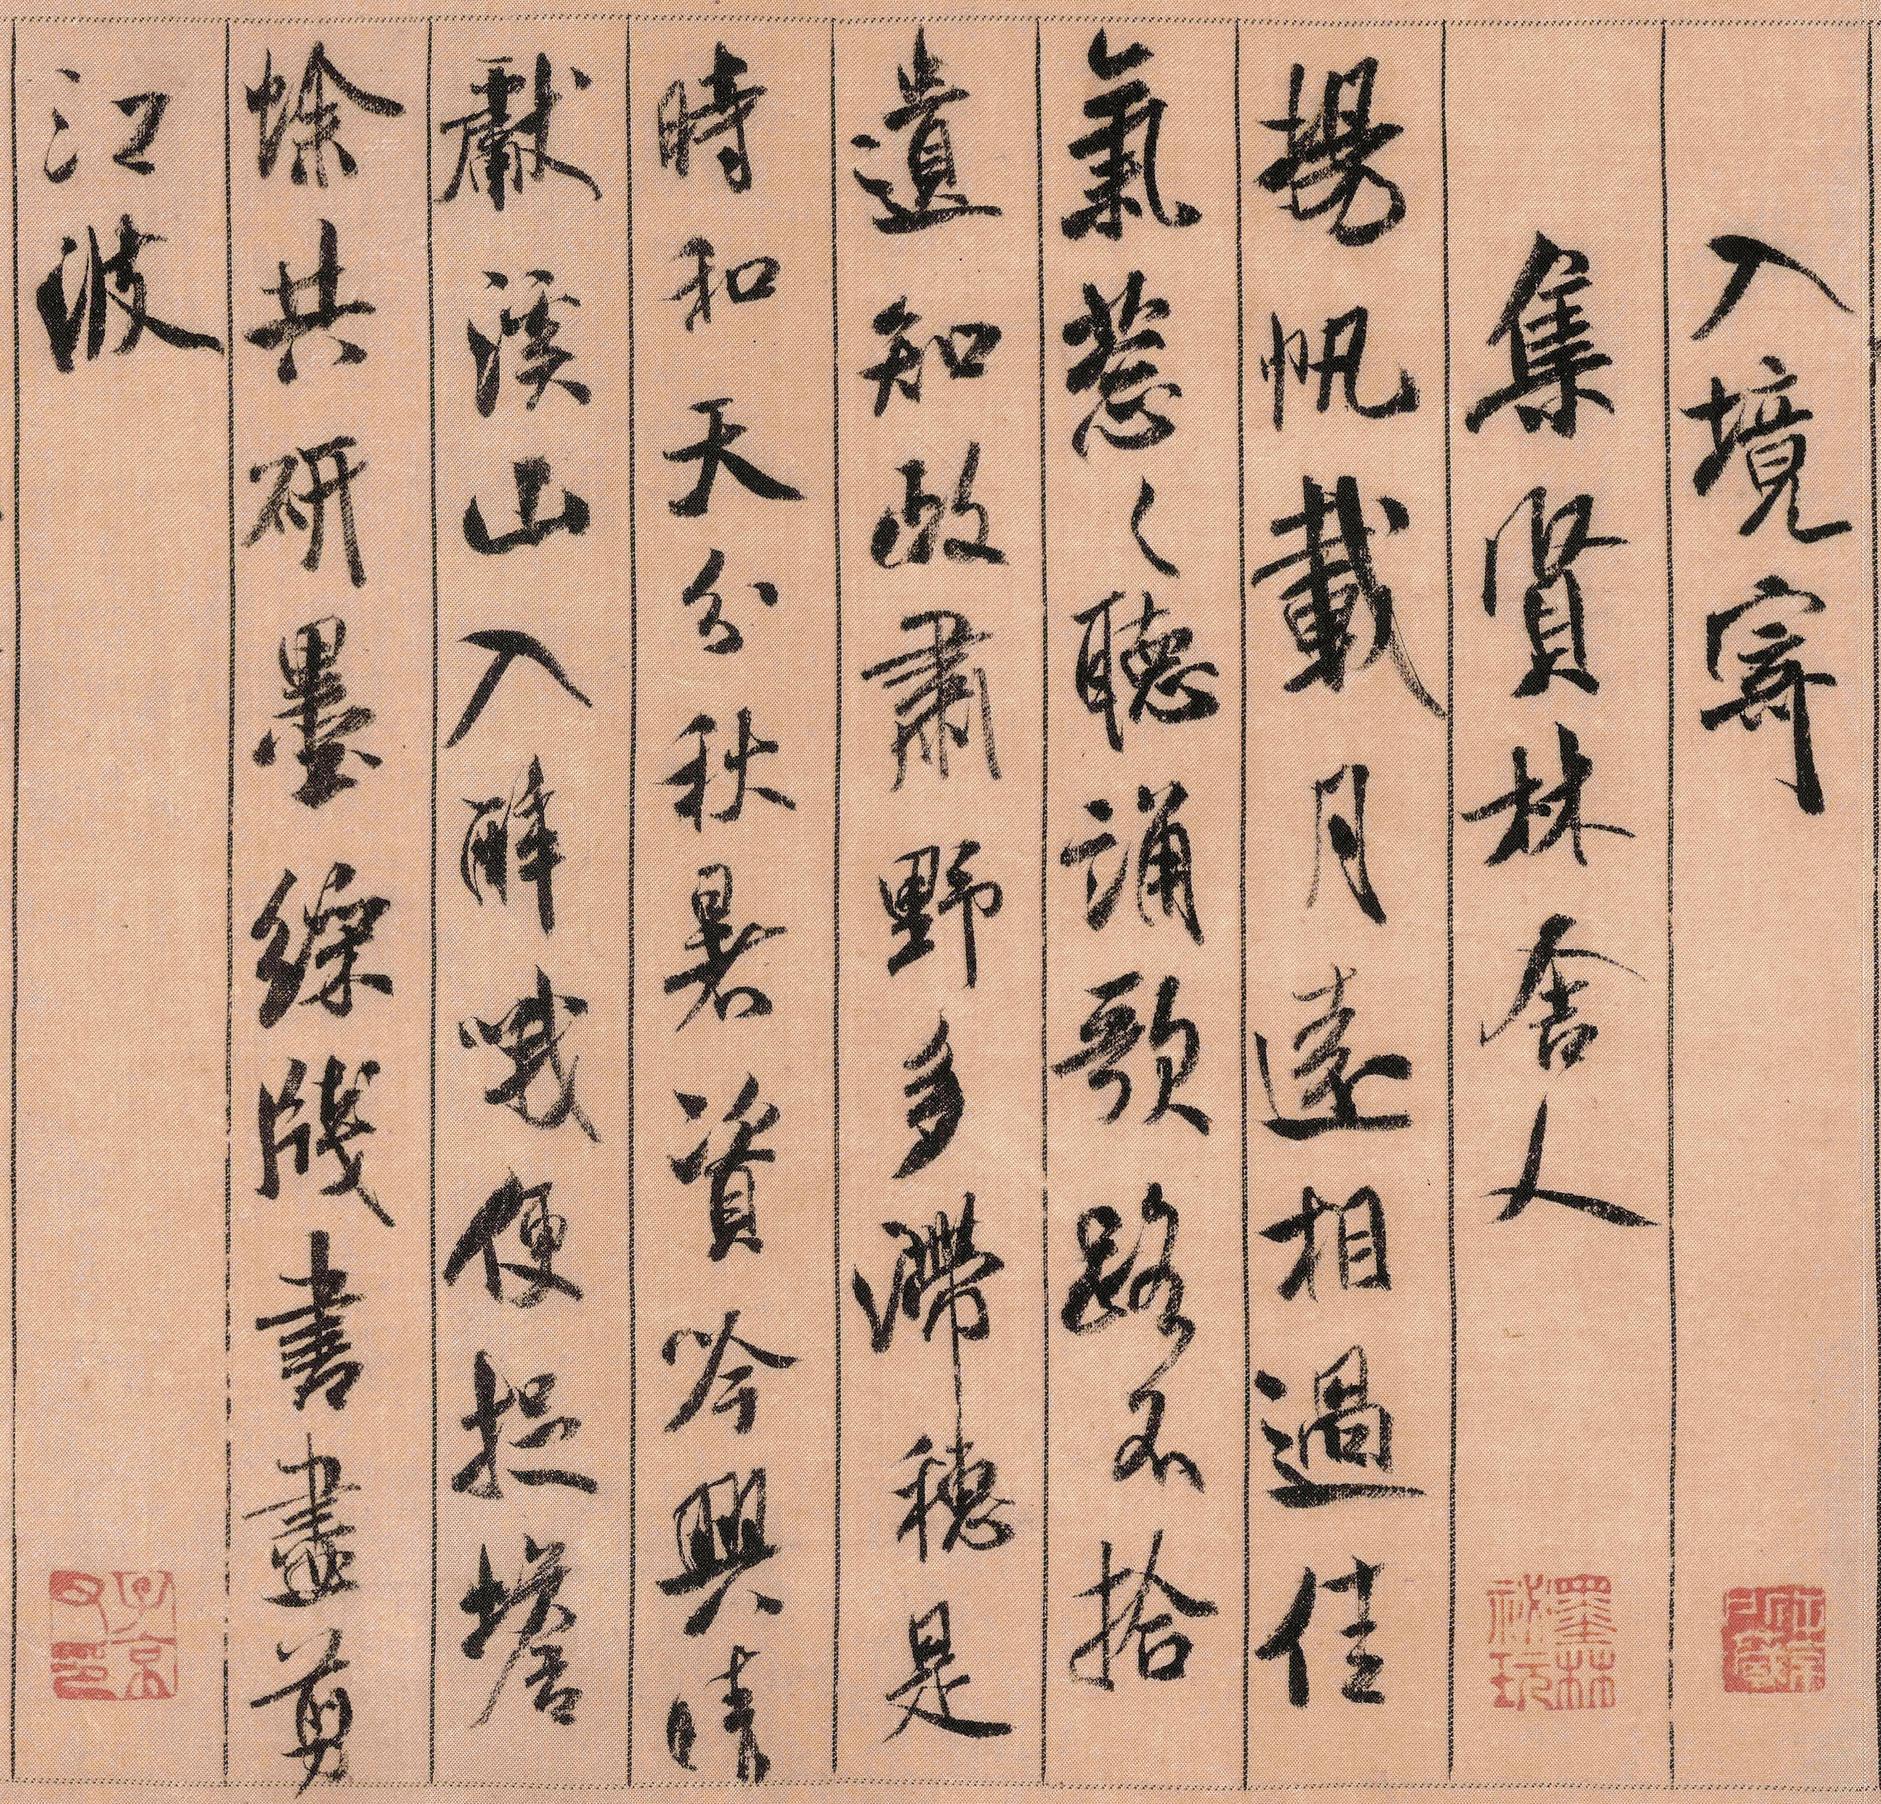 入境寄
集賢林舍人
揚帆載月遠相過佳
氣葱〻聽誦歌路不拾
遺知政肅野多滯穗是
時和天分秋暑資吟興晴
獻溪山入醉哦便捉蟾
蜍共研墨綵牋書盡剪
江波
墨林祕玩